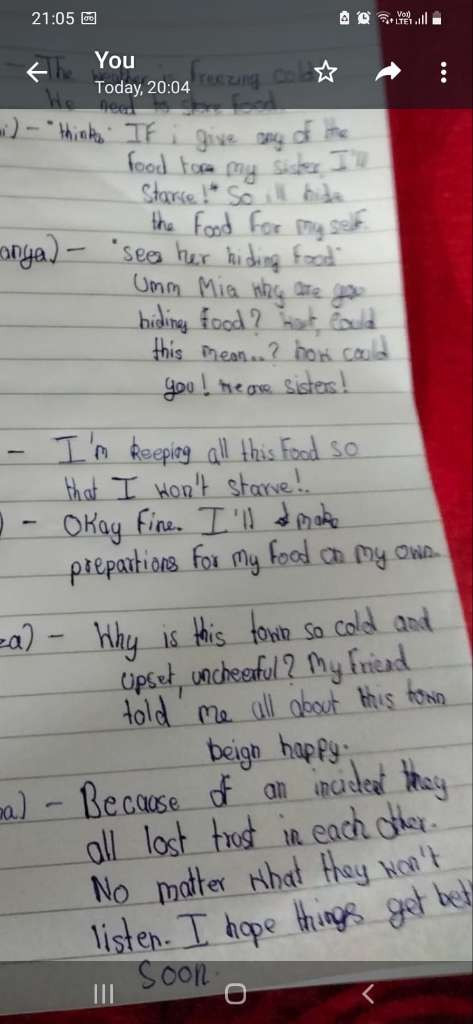 21:05
You
Today, 20:04
- The weather is freezing cold
We need to store food
i) - "thinks. IF i give any of the
food to my sister, I'll
Starve!" So ill hide
the Food For my self.
anga) - "sees her hiding Food"
Umm Mia why are you
hiding food? What could
this mean..? how could
you! we are sisters!
- I'm keeping all this Food so
that I won't starve!.
) - Okay Fine. I'll make
prepartions For my Food on my own.
za) - Why is this town so cold and
upset, uncheerful? My Friend
told me all about this town
beign happy.
na) - Because of an incident they
all lost trust in each other.
No matter what they won't
listen. I hope things get bett
soon.